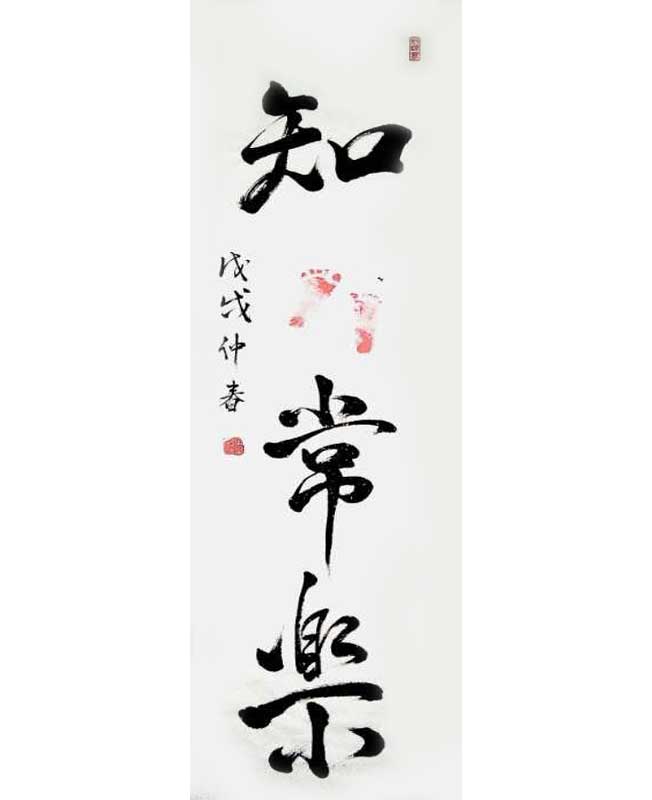 知
常
樂
戊戌仲春